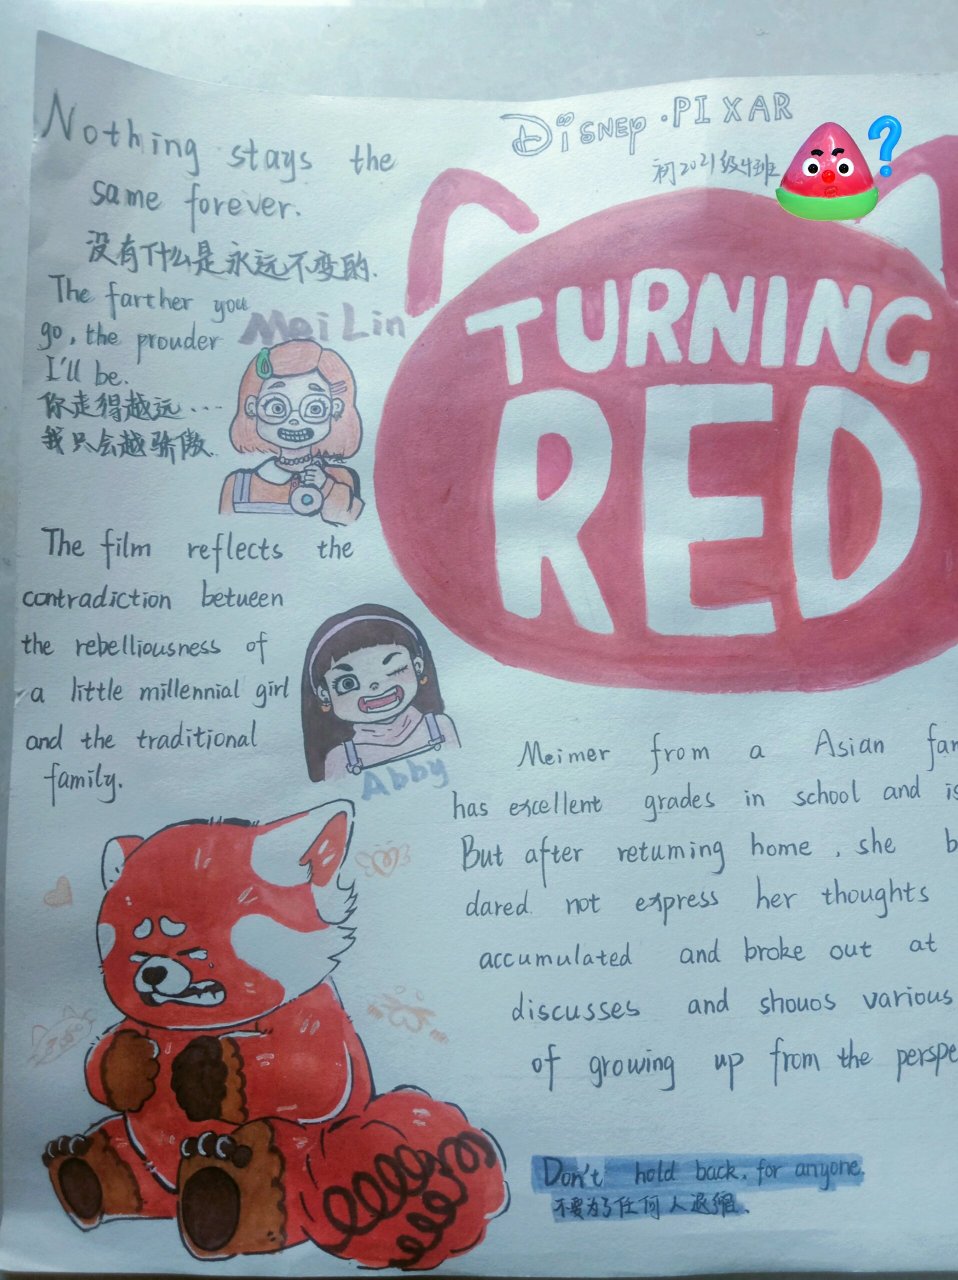 Nothing stays the
same forever.
没有什么是永远不变的.
The farther you
go, the prouder
I'll be.
你走得越远...
我只会越骄傲.
Mei Lin
The film reflects the
contradiction between
the rebelliousness of
a little millennial girl
and the traditional
family.
Abby
DiSNEP ·PIXAR
初2021级4班
TURNING
RED
Meimer from a Asian
has excellent grades in school and
But after returning home, she
dared not express her thoughts
accumulated and broke out at
discusses and various
of growing up from the
Don't hold back, for anyone.
不要为了任何人退缩.
?